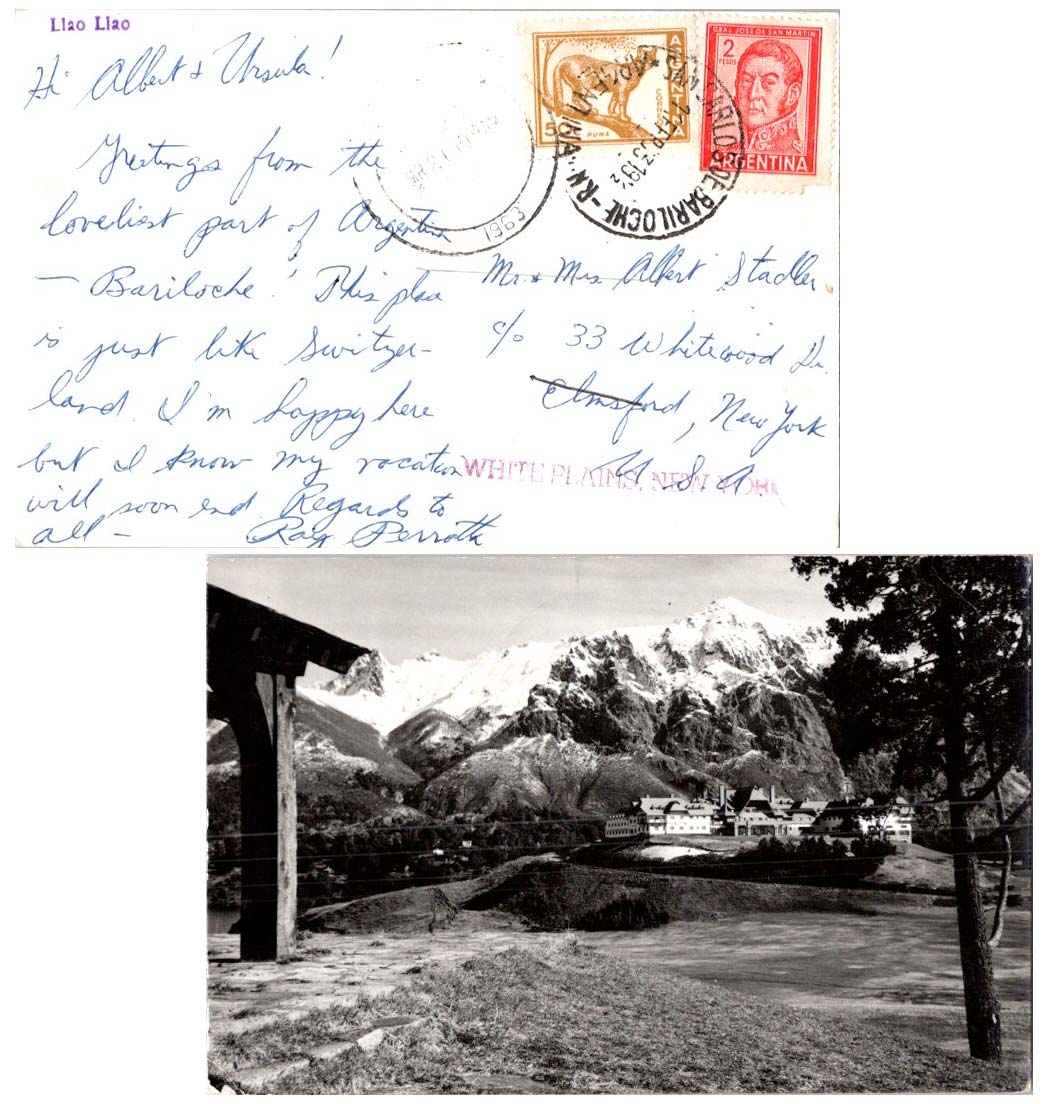 Llao Llao
Hi Albert & Ursula!
Greetings from the
loveliest part of Argentina
— Bariloche! This place
is just like Switzer-
land. I'm happy here
but I know my vacation
will soon end. Regards to
all — Ray
CORREOS
ARGENTINA
5C
PUMA
GRAL. JOSE DE SAN MARTIN
2
PESOS
ARGENTINA
1963
S. CARLOS DE BARILOCHE - R.N.
ARGENTINA
Mr. & Mrs. Albert Stadler
c/o 33 Whitewood Dr.
Elmsford, New York
U S A
WHITE PLAINS, NEW YORK